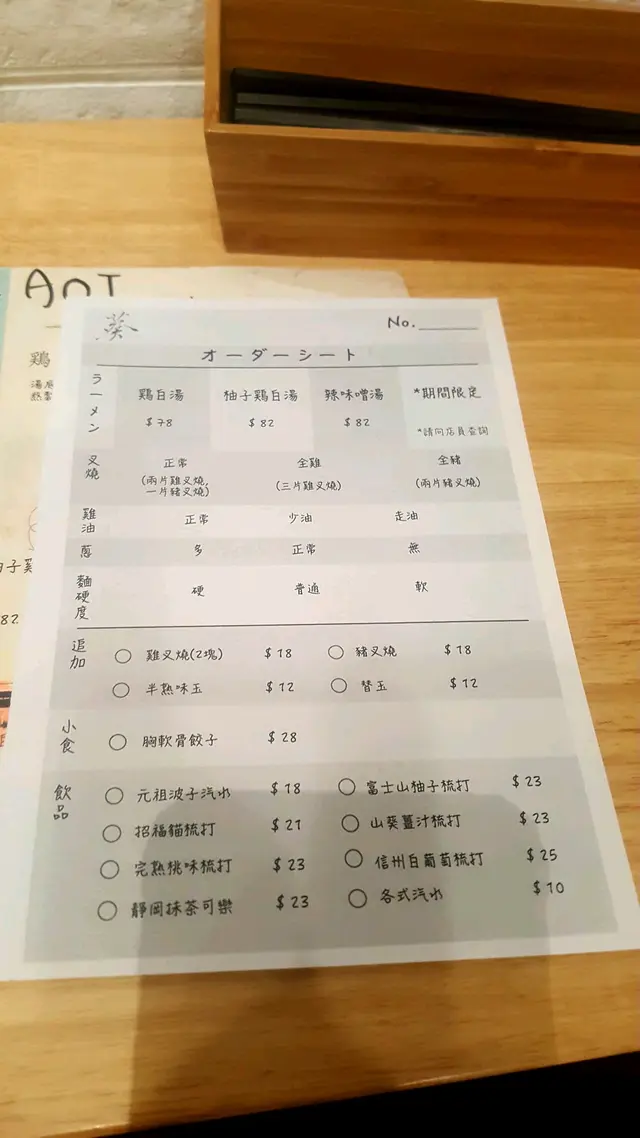 AOI
葵
No.
オーダーシート
ラーメン
鶏白湯 柚子鶏白湯 辣味噌湯 *期間限定
$78 $82 $82 *請向店員查詢
叉燒
正常 全雞 全豬
(兩片雞叉燒, (三片雞叉燒) (兩片豬叉燒)
一片豬叉燒)
雞油 正常 少油 走油
蔥 多 正常 無
麵硬度 硬 普通 軟
追加
雞叉燒(2塊) $18 豬叉燒 $18
半熟味玉 $12 替玉 $12
小食
胸軟骨餃子 $28
飲品
元祖波子汽水 $18 富士山柚子梳打 $23
招福貓梳打 $21 山葵薑汁梳打 $23
完熟桃味梳打 $23 信州白葡萄梳打 $25
靜岡抹茶可樂 $23 各式汽水 $10
鶏
82